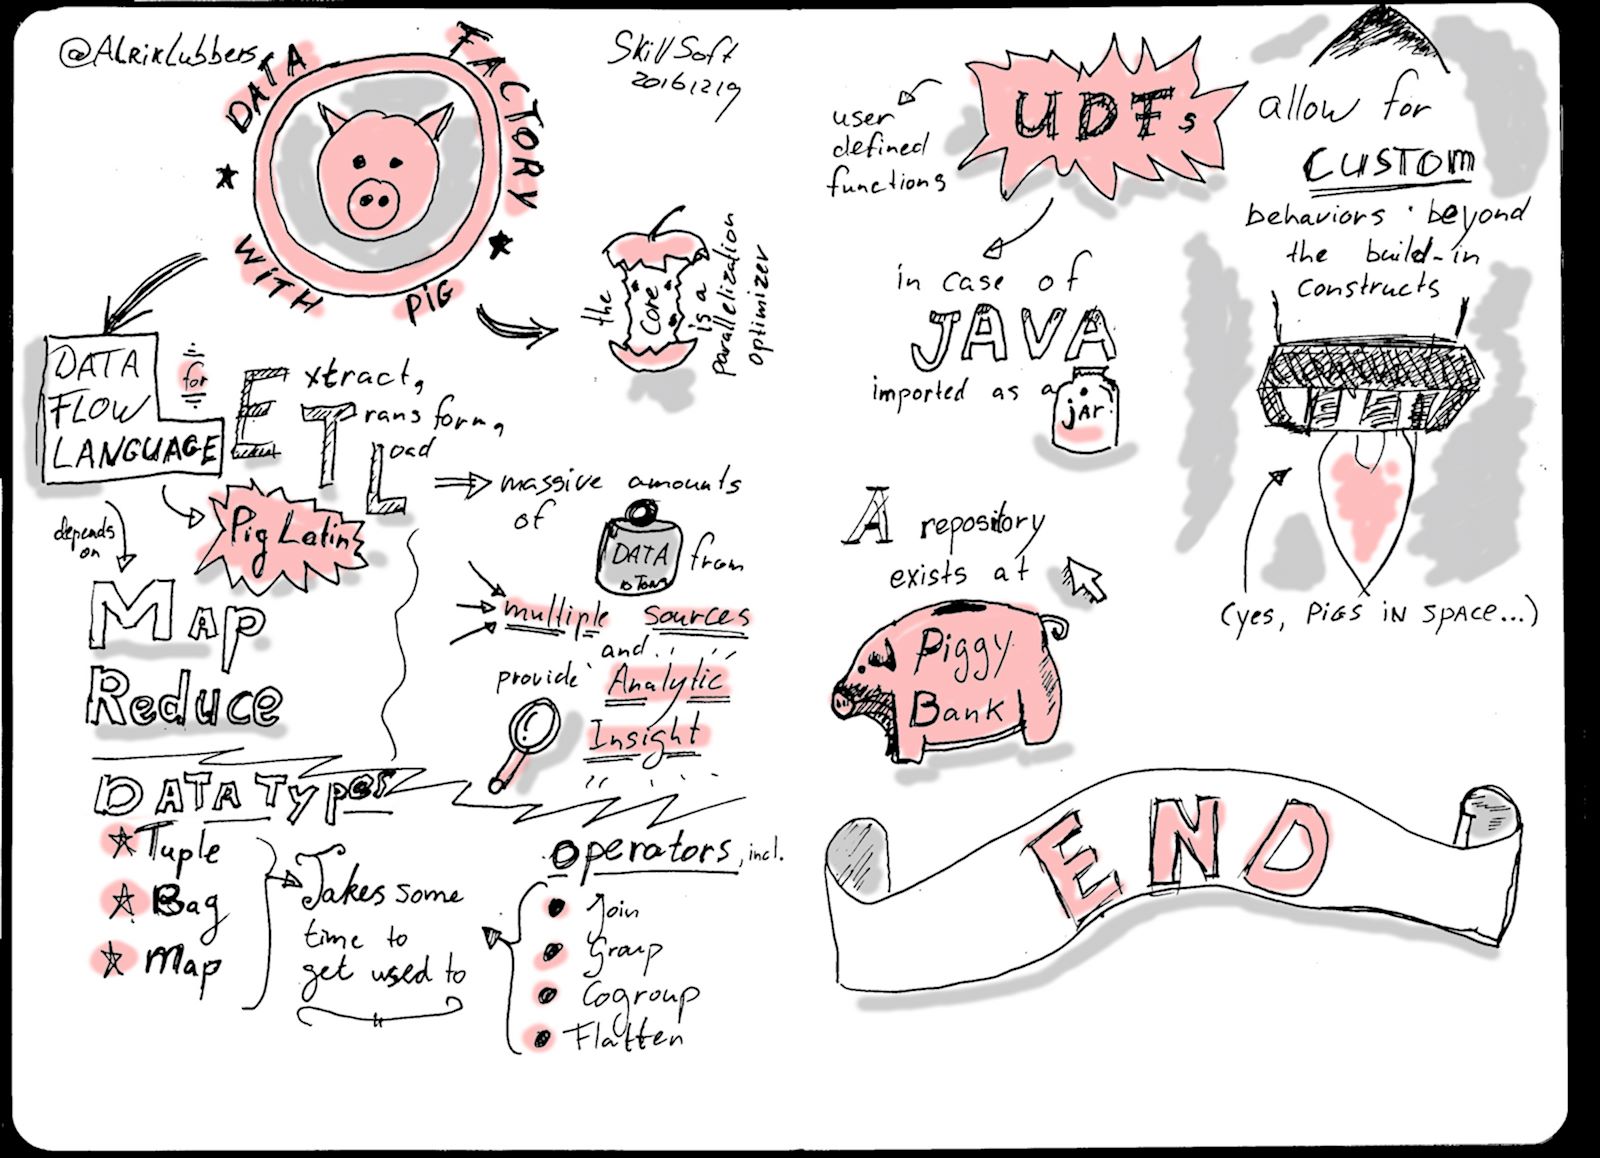 @AlrikLubbers
DATA FACTORY
WITH PIG
SkillSoft
20161219
the
Core
is a
parallelization
optimizer
DATA
FLOW
LANGUAGE
for
Extract,
Transform,
Load
depends
on
Pig Latin
Map
Reduce
massive amounts
of
DATA
10 Tons
from
multiple sources
and
provide Analytic
Insight
DATA Types
Tuple
Bag
Map
Takes some
time to
get used to
Operators, incl.
Join
Group
Cogroup
Flatten
UDFs
user
defined
functions
allow for
CUSTOM
behaviors beyond
the build-in
constructs
(yes, PiGS iN SPACE...)
in case of
JAVA
imported as a
jar
A repository
exists at
Piggy
Bank
END